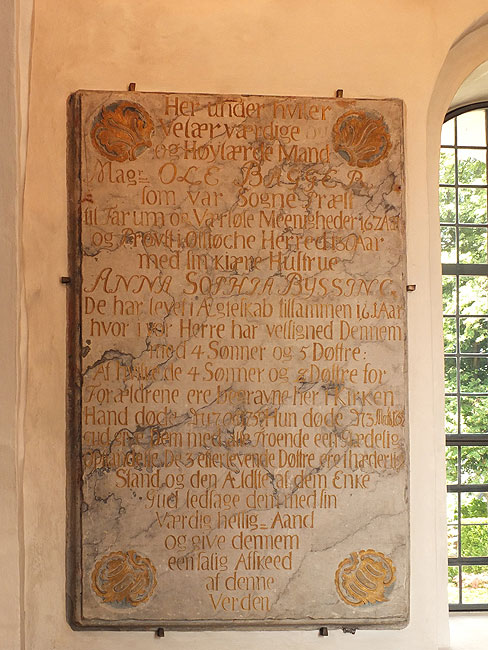 Her under hviler
Velærværdige og
og Høylærde Mand
Mag= OLE BAGGER
som var Sogne Præst
til Farum og Værløse Meenigheder
og Provst i Ølstøche Herred Aar
med sin kiære Hustrue
ANNA SOPHIA BYSSING
De har levet i Ægteskab tillsammen Aar
hvor i vor Herre har velsigned Dennem
med 4 Sønner og 5 Døttre:
Af hvilke de 4 Sønner og 2 Døttre for
Forældrene ere begravne her i Kirken
Hand døde Hun døde
gud give Dem med alle Troende een Salig
De 3 efterlevende Døttre ere i hæderlig
Stand, og den Ældste af dem Enke
Gud ledsage dem med sin
Værdig hellig= Aand
og give dennem
een salig Afskeed
af denne
Verden